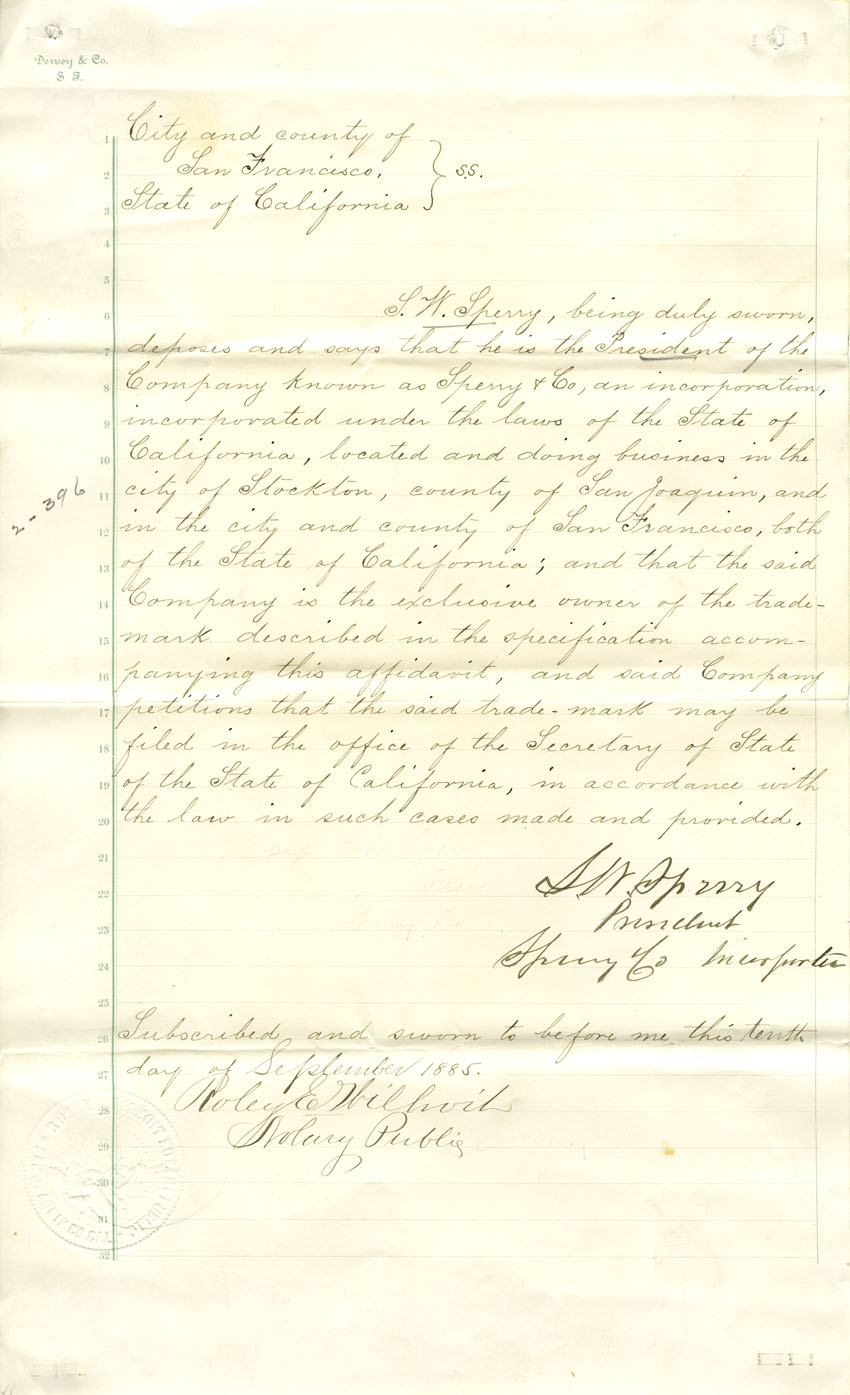 Dewey & Co.
S F.
1 City and county of
2 San Francisco, } s.s.
3 State of California
4
5
6 S. W. Sperry, being duly sworn,
7 deposes and says that he is the President of the
8 Company known as Sperry & Co, an incorporation,
9 incorporated under the laws of the State of
10 California, located and doing business in the
2-396
11 city of Stockton, county of San Joaquin, and
12 in the city and county of San Francisco, both
13 of the State of California; and that the said
14 Company is the exclusive owner of the trade-
15 mark described in the specification accom-
16 panying this affidavit, and said Company
17 petitions that the said trade-mark may be
18 filed in the office of the Secretary of State
19 of the State of California, in accordance with
20 the law in such cases made and provided.
21
22 S. W. Sperry
23 President
24 Sperry & Co
25
26 Subscribed and sworn to before me this tenth
27 day of September 1885.
28
29 Notary Public
30
31
32